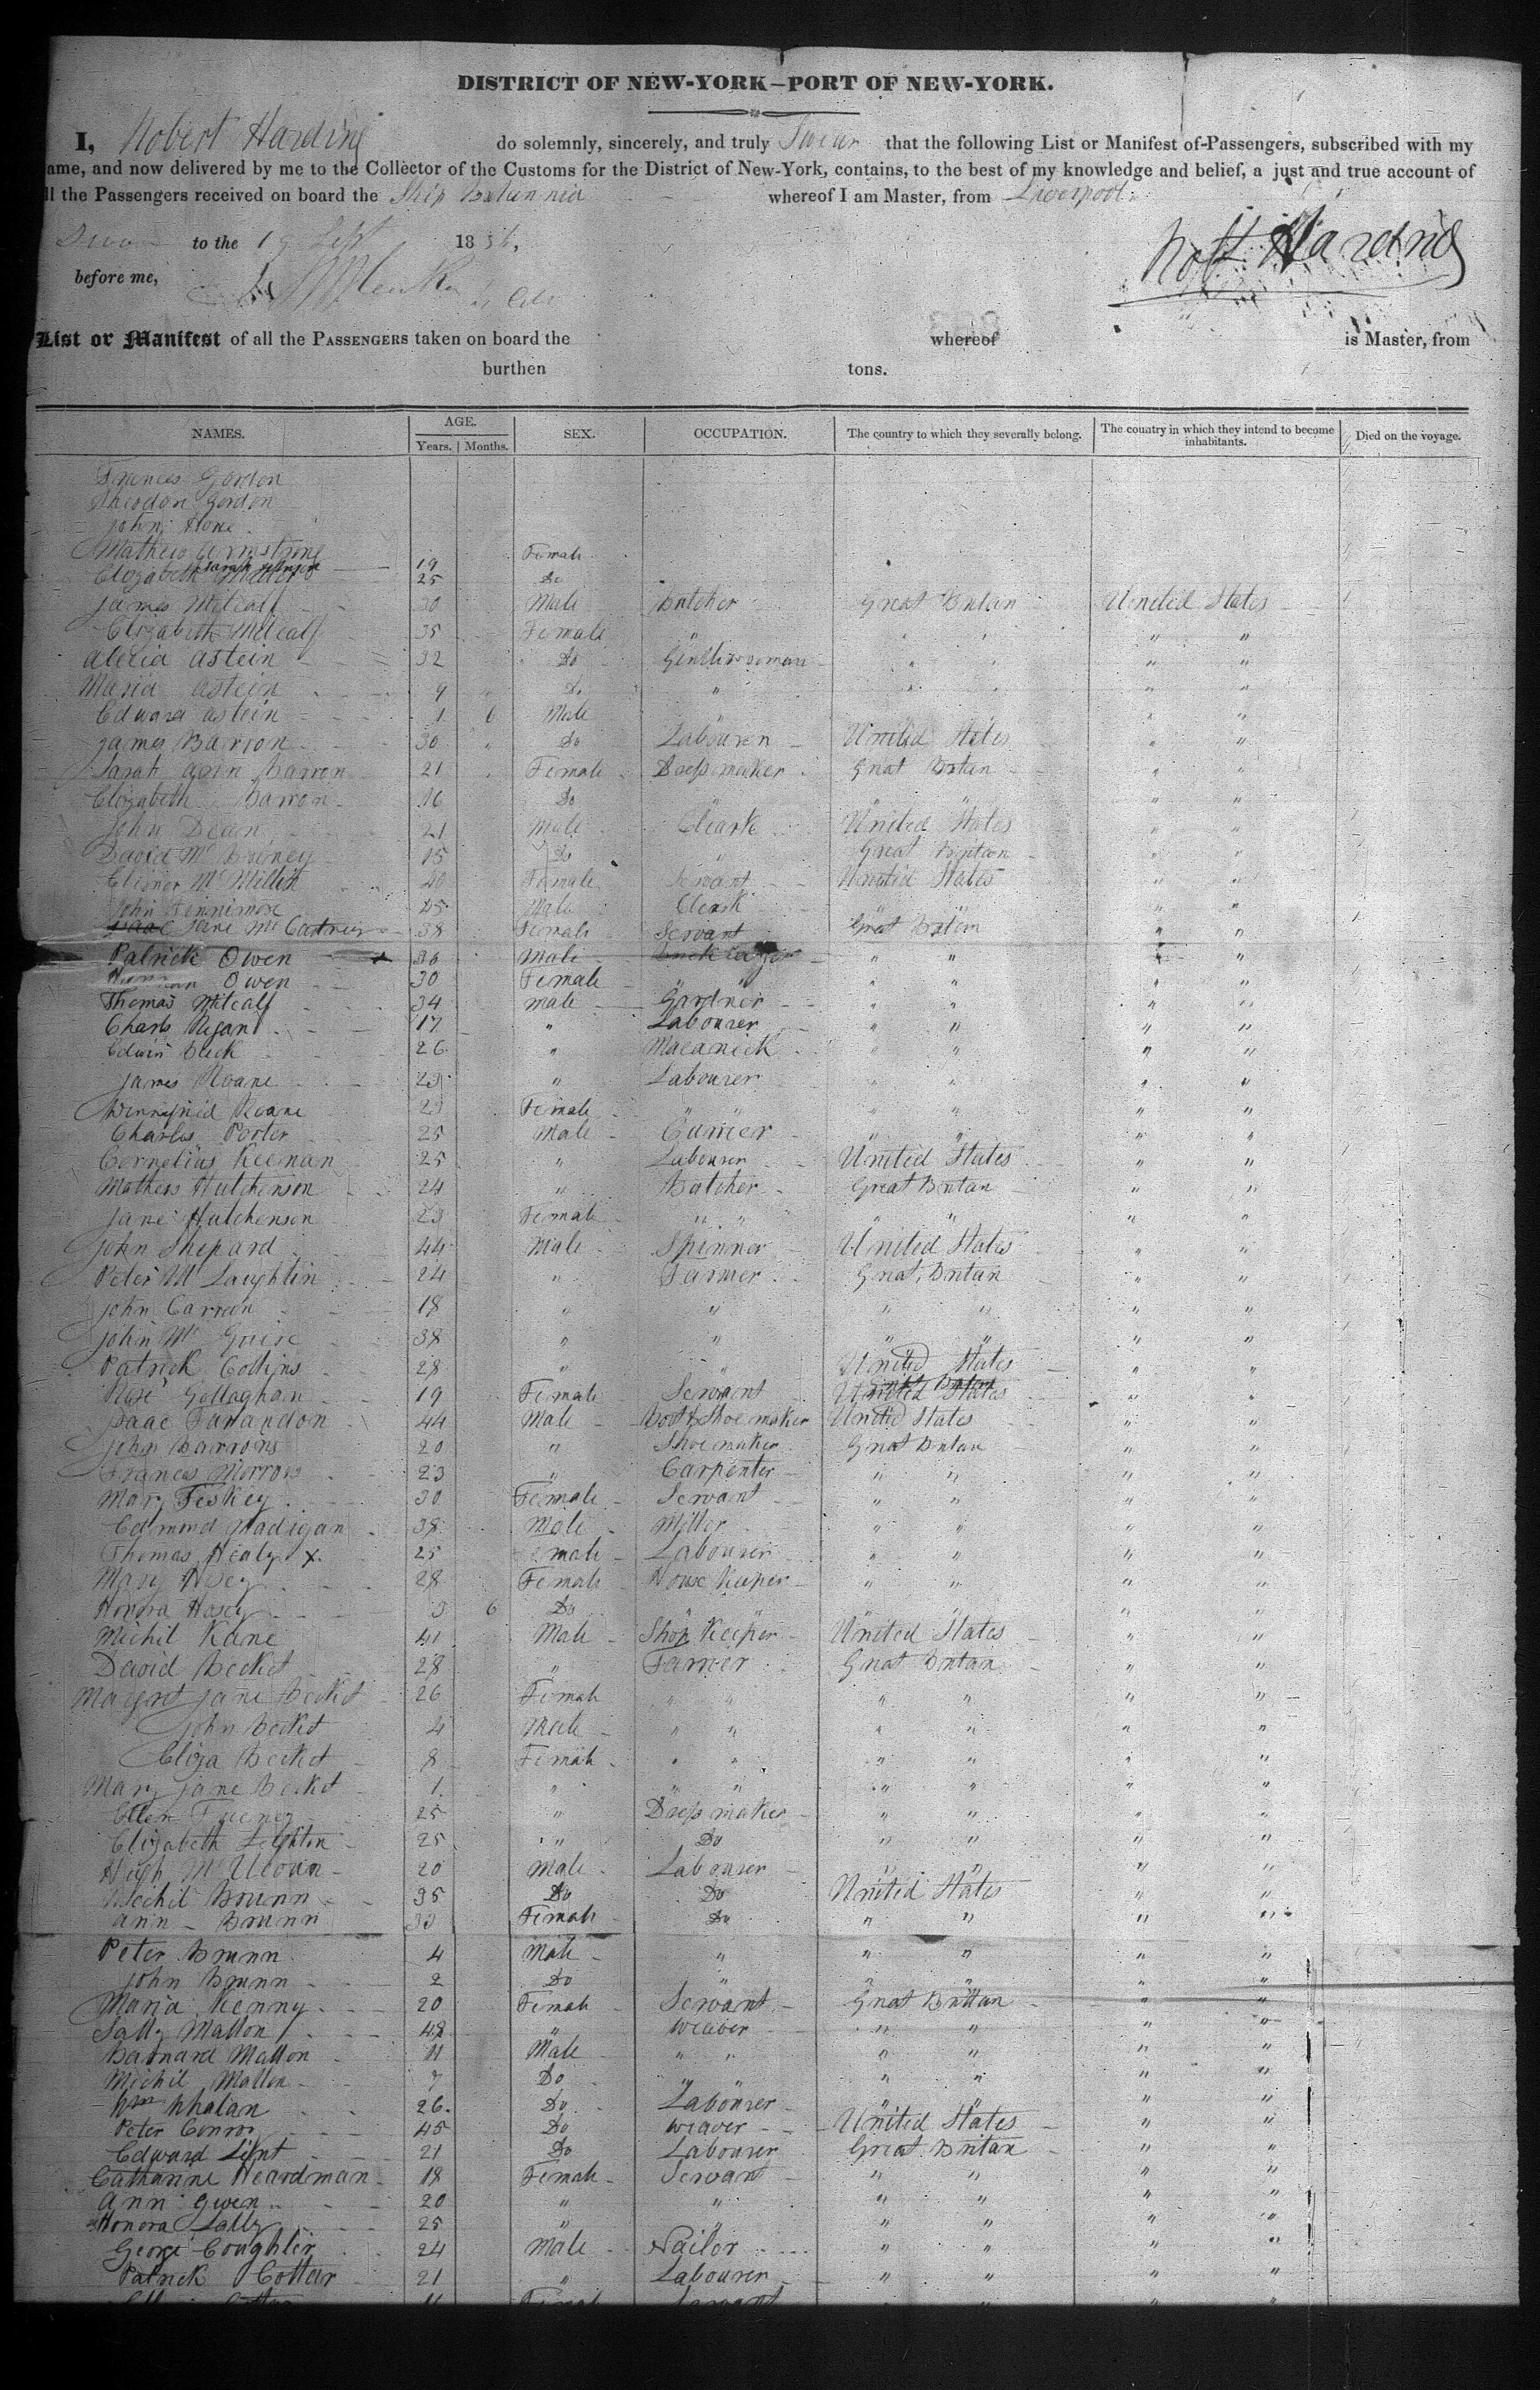 DISTRICT OF NEW-YORK—PORT OF NEW-YORK.
I, Robert Harding do solemnly, sincerely, and truly Swear that the following List or Manifest of Passengers, subscribed with my
ame, and now delivered by me to the Collector of the Customs for the District of New-York, contains, to the best of my knowledge and belief, a just and true account of
ll the Passengers received on board the Ship Britannia whereof I am Master, from Liverpool
to the 19 Sept 1836.
Robt Harding
before me,
List or Manifest of all the PASSENGERS taken on board the whereof is Master, from
burthen tons.
NAMES. AGE. SEX. OCCUPATION. The country to which they severally belong. The country in which they intend to become inhabitants. Died on the voyage.
Years. Months.
Frances Gordon
Theodore Gordon
John Hone
Mathew Armstrong
19 Female
Elizabeth 25 Do
James Metcalf 30 Male Butcher Great Britan United States
Elizabeth Metcalf 35 Female " " " "
Alecia Astein 32 Do Gentlewoman " " " "
Maria Astein 9 " Do " " " " "
Edward Astein 1 6 Male " " "
James Barron 30 " Do Labourer United States " "
Sarah Ann Barron 21 Female Dressmaker Great Britan " "
Elizabeth Barron 16 Do " " " " "
John Dean 21 Male Cleark United States " "
David Mc 15 Do " Great Britan " "
Elinor Mc Millin 40 Female Servant United States " "
John Hennimore 25 Male Clerk " " " "
Jane Mc 38 Female Servant Great Britan " "
Patrick Owen 36 Male " " " "
Owen 30 Female " " " " " "
Thomas Metcalf 34 male Gardner " " " "
Charls Regan 17 " Labourer " " " "
Edwin Beck 26 " Macanick " " " "
James Roane 29 " Labourer " " " "
Winnyfrid Roane 23 Female " " " " " "
Charles Porter 25 Male " " " "
Cornelius Keenan 25 " Labourer United States " "
Mathew Hutchenson 24 " Butcher Great Britan " "
Jane Hutchenson 23 Female " " " " " "
John Shepard 44 Male Spinner United States " "
Peter Mc Laughlin 24 " Farmer Great Britan " "
John Carreen 18 " " " " " "
John Mc Guire 38 " " " " " "
Patrick Collins 28 " " United States " "
Rose Gollaghan 19 Female Servant Great Britan " "
Isaac Farrandon 44 Male Boot & Shoe maker United States " "
John Barrons 20 " Shoe maker Great Britan " "
Frances Morrow 23 " Carpenter " " " "
Mary Feskey 30 Female Servant " " " "
Edmond Madigan 38 Male Miller " " " "
Thomas Healy x 25 emale Labourer " " " "
Mary Hosey 28 Female House Keeper " " " "
Honora Hosey 3 6 Do " " " " " "
Michil Kane 41 Male Shop Keeper United States " "
David Becket 28 " Farmer Great Britan " "
Margret Jane Becket 26 Female " " " " " "
John Becket 4 Male " " " " " "
Eliza Becket 8 Female " " " " " "
Mary Jane Becket 1 " " " " " " "
Ellen Feeney 25 " Dress maker " " " "
Elizabeth Leighton 25 " Do " " " "
Hugh Mc 20 Male Labourer " " " "
Michil Brunn 35 Do Do United States " "
Ann Brunn 33 Female Do " " " "
Peter Brunn 4 Male " " " " "
John Brunn 2 Do " " " " "
Maria Kenny 20 Female Servant Great Brittan " "
Sally Mallon 48 " Weaver " " " "
Barnard Mallon 11 Male " " " " " "
Michil Mallon 7 Do " " " " " "
Wm Whalan 26 Do Labourer " " " "
Peter Conroy 45 Do weaver United States " "
Edward Lint 21 Do Labourer Great Britan " "
Catharine Heardman 18 Female Servant " " " "
Ann Gwen 20 " " " " " "
Honora Lally 25 " " " " " "
George Coughlir 24 Male Nailor " " " "
Patrick Cottar 21 " Labourer " " " "
11 Female Servant " " " "